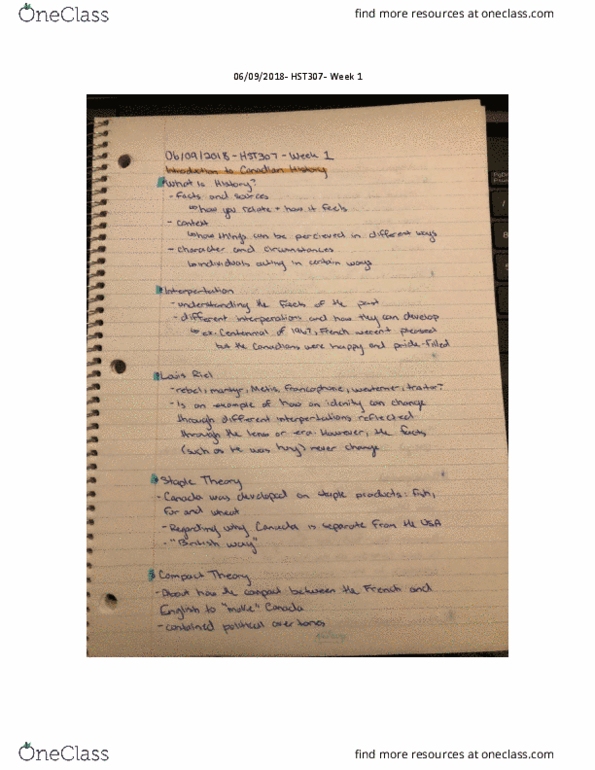 OneClass
find more resources at oneclass.com
06/09/2018- HST307- Week 1
06/09/2018 - HST307 - Week 1
Introduction to Canadian History
What is History?
- facts and sources
↳ how you relate + how it feels
- context
↳ how things can be percieved in different ways
- character and circumstances
↳ individuals acting in certain ways
Interpertation
- understanding the facts of the past
- different interperations and how they can develop
↳ ex. Centennial of 1967, French weren't pleased
but the Canadians were happy and pride-filled
Louis Riel
- rebel, martyr, Metis, francophone, westerner, traitor?
- Is an example of how an idenity can change
through different interpertations reflected
through the lens or era. However, the facts
(such as He was hung) never change
Staple Theory
- Canada was developed on staple products: fish,
fur and wheat
- Regarding why Canada is separate from the USA
- "British way"
Compact Theory
- About how the compact between the French and
English to "make" Canada
- contained political over tones
OneClass
find more resources at oneclass.com